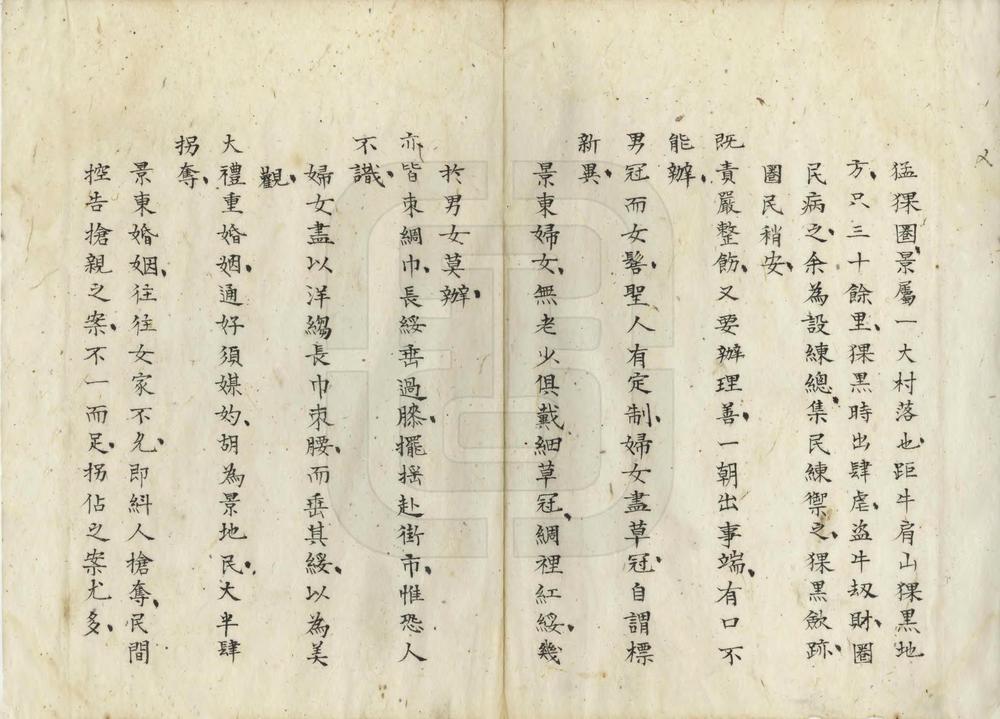 猛猓圈、景屬一大村落也、距牛肩山猓黑地
方、只三十餘里、猓黑時出肆虐、盜牛刼財、圈
民病之、余為設練總、集民練禦之、猓黑歛跡、
圈民稍安、
既責嚴整飭、又要辦理善、一朝出事端、有口不
能辦、
男冠而女髻、聖人有定制、婦女盡草冠、自謂標
新異、
景東婦女、無老少俱戴細草冠、綢裡紅綏、幾
於男女莫辦、
亦皆朿綢巾、長綏埀過膝、擺摇赴街市、惟恐人
不識、
婦女盡以洋縐長巾朿腰、而垂其綏、以為美
觀、
大禮重婚姻、通好須媒妁、胡為景地民、大半肆
拐奪、
景東婚姻、往往女家不允、即糾人搶奪、民間
控告搶親之案、不一而足、拐佔之案尤多、